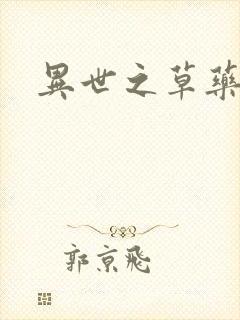 異世之草藥
郭京飛